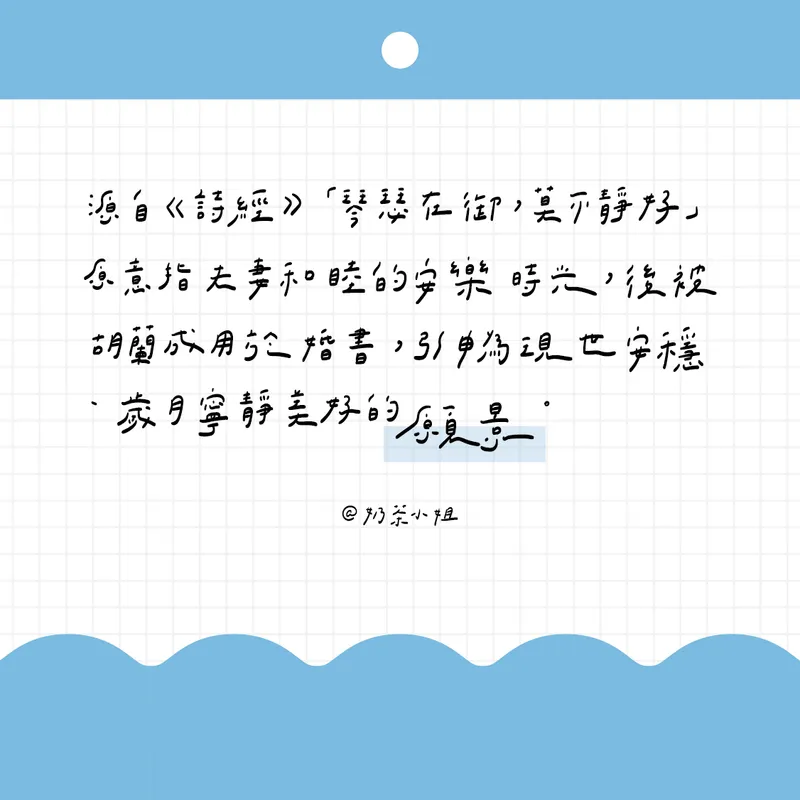 源自《詩經》「琴瑟在御，莫不靜好」
原意指夫妻和睦的安樂時光，後被
胡蘭成用於婚書，引申為現世安穩
、歲月寧靜美好的願景。
@奶茶小姐